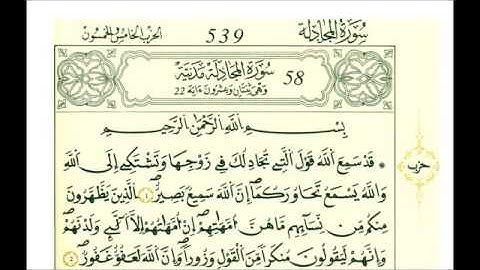 سُورَةُ الْمُجَادِلَةِ 539 الحزب الخامس والخمسون
سُورَةُ الْمُجَادِلَةِ مَدَنِيَّةٌ 58
وَهْيَ ثِنْتَانِ وَعِشْرُونَ ءَايَةً 22
بِسْمِ اللَّهِ الرَّحْمَٰنِ الرَّحِيمِ
* قَدْ سَمِعَ اللَّهُ قَوْلَ الَّتِي تُجَادِلُكَ فِي زَوْجِهَا وَتَشْتَكِي إِلَى اللَّهِ حزب
وَاللَّهُ يَسْمَعُ تَحَاوُرَكُمَا إِنَّ اللَّهَ سَمِيعٌ بَصِيرٌ ١ الَّذِينَ يَظَّهَّرُونَ
مِنكُم مِّن نِّسَآئِهِم مَّا هُنَّ أُمَّهَٰتِهِمْ إِنْ أُمَّهَٰتُهُمْ إِلَّا الَّٰٓـِٔي وَلَدْنَهُمْ
وَإِنَّهُمْ لَيَقُولُونَ مُنكَرًا مِّنَ الْقَوْلِ وَزُورًا وَإِنَّ اللَّهَ لَعَفُوٌّ غَفُورٌ ٢